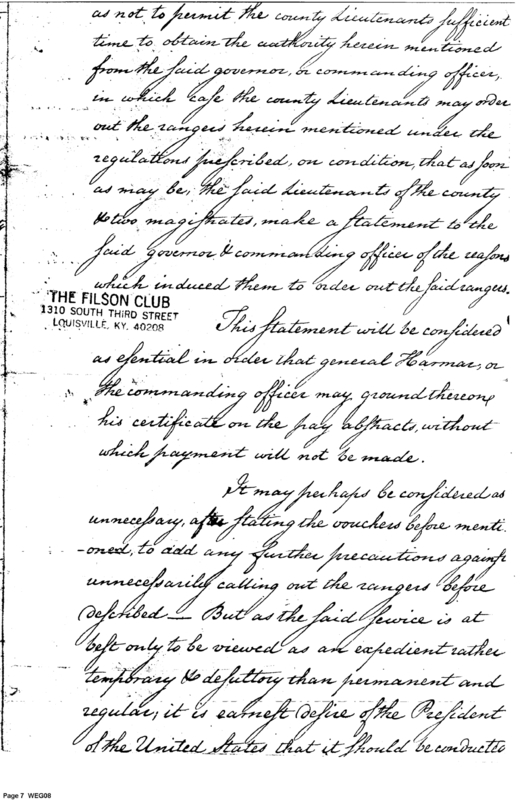 as not to permit the county Lieutenants sufficient
time to obtain the authority herein mentioned
from the said governor, or commanding officer,
in which case the county Lieutenants may order
out the rangers herein mentioned under the
regulations prescribed, on condition, that as soon
as may be, the said Lieutenants of the county
& two magistrates, make a statement to the
said governor & commanding officer of the reasons
which induced them to order out the said rangers.
THE FILSON CLUB
1310 SOUTH THIRD STREET
LOUISVILLE, KY. 40208
This statement will be considered
as esential in order that general Harmar, or
the commanding officer may ground thereon,
his certificate on the pay abstracts, without
which payment will not be made.
It may perhaps be considered as
unnecessary, after stating the vouchers before menti
-oned, to add any further precautions against
unnecessarily calling out the rangers before
described — But as the said service is at
best only to be viewed as an expedient rather
temporary & desultory than permanent and
regular, it is earnest desire of the President
of the United States that it should be conducted
Page 7 WEG08